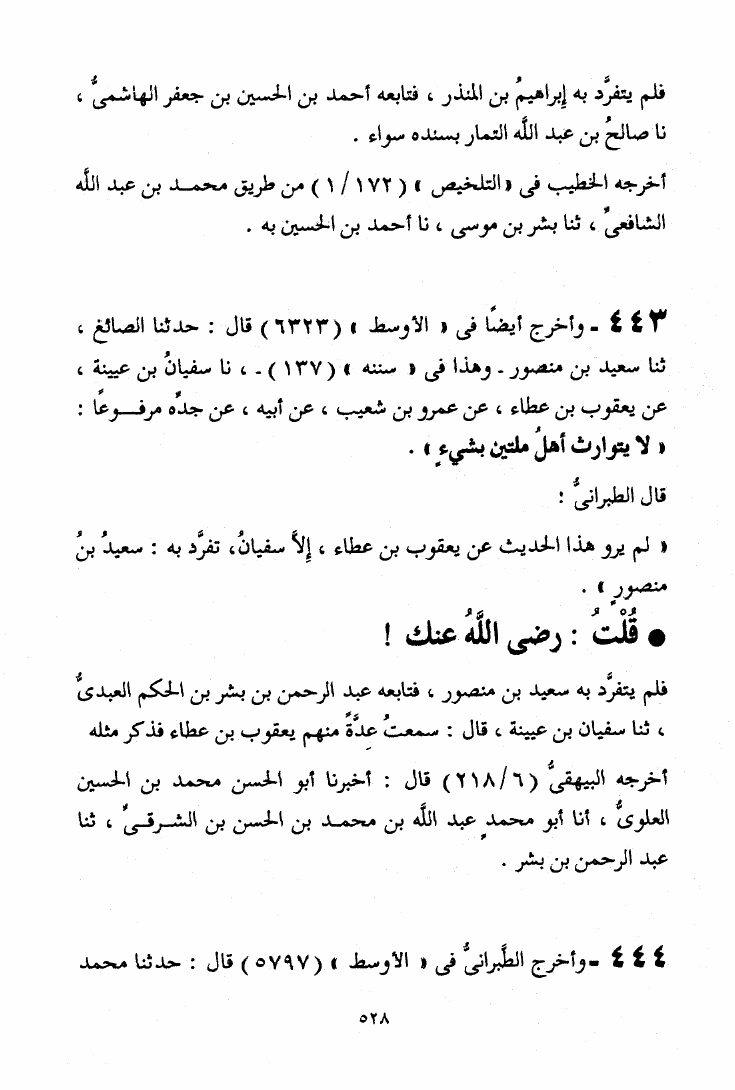 فلم يتفرَّد به إبراهيمُ بن المنذر ، فتابعه أحمد بن الحسين بن جعفر الهاشمىُّ ،
نا صالحُ بن عبد اللَّه التمار بسنده سواء .
أخرجه الخطيب فى « التلخيص » ( ١٧٢ / ١ ) من طريق محمد بن عبد اللَّه
الشافعىِّ ، ثنا بشر بن موسى ، نا أحمد بن الحسين به .
٤٤٣ ـ وأخرج أيضًا فى « الأوسط » ( ٦٣٢٣ ) قال : حدثنا الصائغ ،
ثنا سعيد بن منصور ـ وهذا فى « سننه » ( ١٣٧ ) ـ ، نا سفيانُ بن عيينة ،
عن يعقوب بن عطاء ، عن عمرو بن شعيب ، عن أبيه ، عن جدِّه مرفوعًا :
« لا يتوارث أهلُ ملتين بشيءٍ » .
قال الطبرانىُّ :
« لم يرو هذا الحديث عن يعقوب بن عطاء ، إلاَّ سفيانُ، تفرَّد به : سعيدُ بنُ
منصورٍ » .
● قُلْتُ : رضى اللَّهُ عنك !
فلم يتفرَّد به سعيد بن منصور ، فتابعه عبد الرحمن بن بشر بن الحكم العبدىُّ
، ثنا سفيان بن عيينة ، قال : سمعتُ عدَّةً منهم يعقوب بن عطاء فذكر مثله
أخرجه البيهقىُّ ( ٢١٨/٦ ) قال : أخبرنا أبو الحسن محمد بن الحسين
العلوىُّ ، أنا أبو محمدٍ عبد اللَّه بن محمد بن الحسن بن الشرقىِّ ، ثنا
عبد الرحمن بن بشر .
٤٤٤ ـ وأخرج الطَّبرانىُّ فى « الأوسط » ( ٥٧٩٧ ) قال : حدثنا محمد
٥٢٨